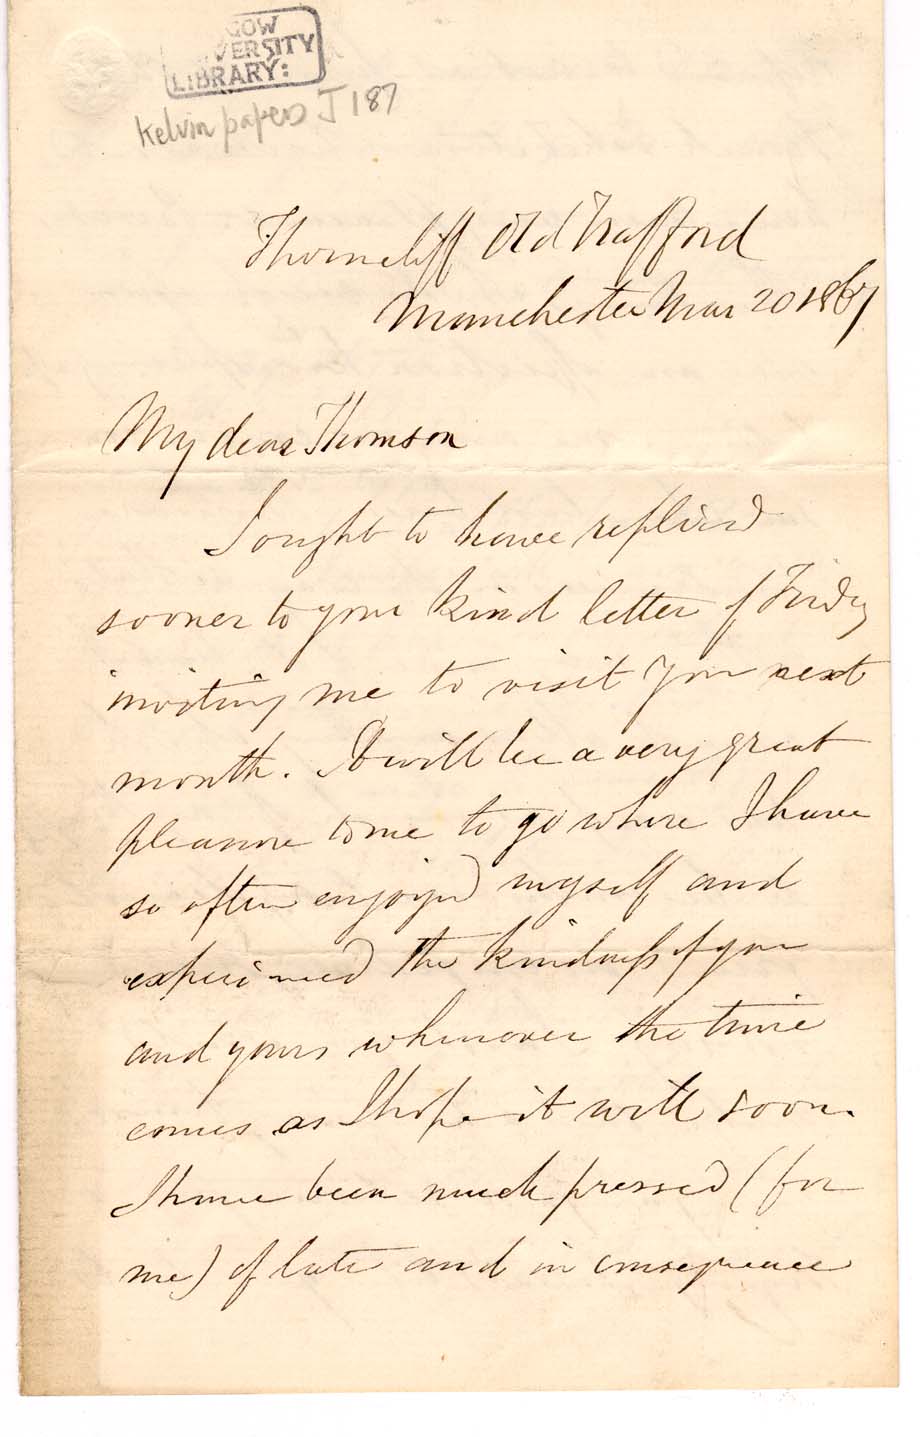 GOW
VERSITY
LIBRARY:
Kelvin papers J 187
Thorncliff Old Trafford
Manchester Mar 20 1867
My dear Thomson
I ought to have replied
sooner to your kind letter of Friday
inviting me to visit you next
month. It will be a very great
pleasure to me to go where I have
so often enjoyed myself and
experienced the kindness of you
and yours whenever the time
comes as I hope it will soon.
I have been much pressed (for
me) of late and in consequence